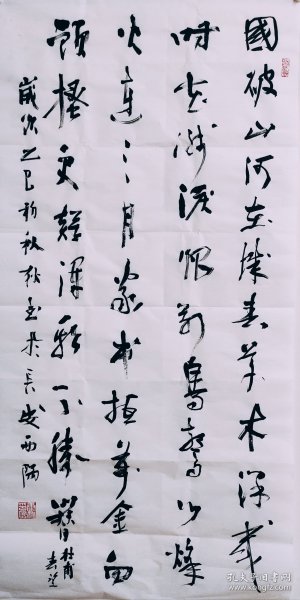 國破山河在城春草木深感
時花濺淚恨別鳥驚心烽
火連三月家書抵萬金白
頭搔更短渾欲不勝簪
杜甫
春望
歲次乙巳初秋於長安西隅
孔夫子旧书网